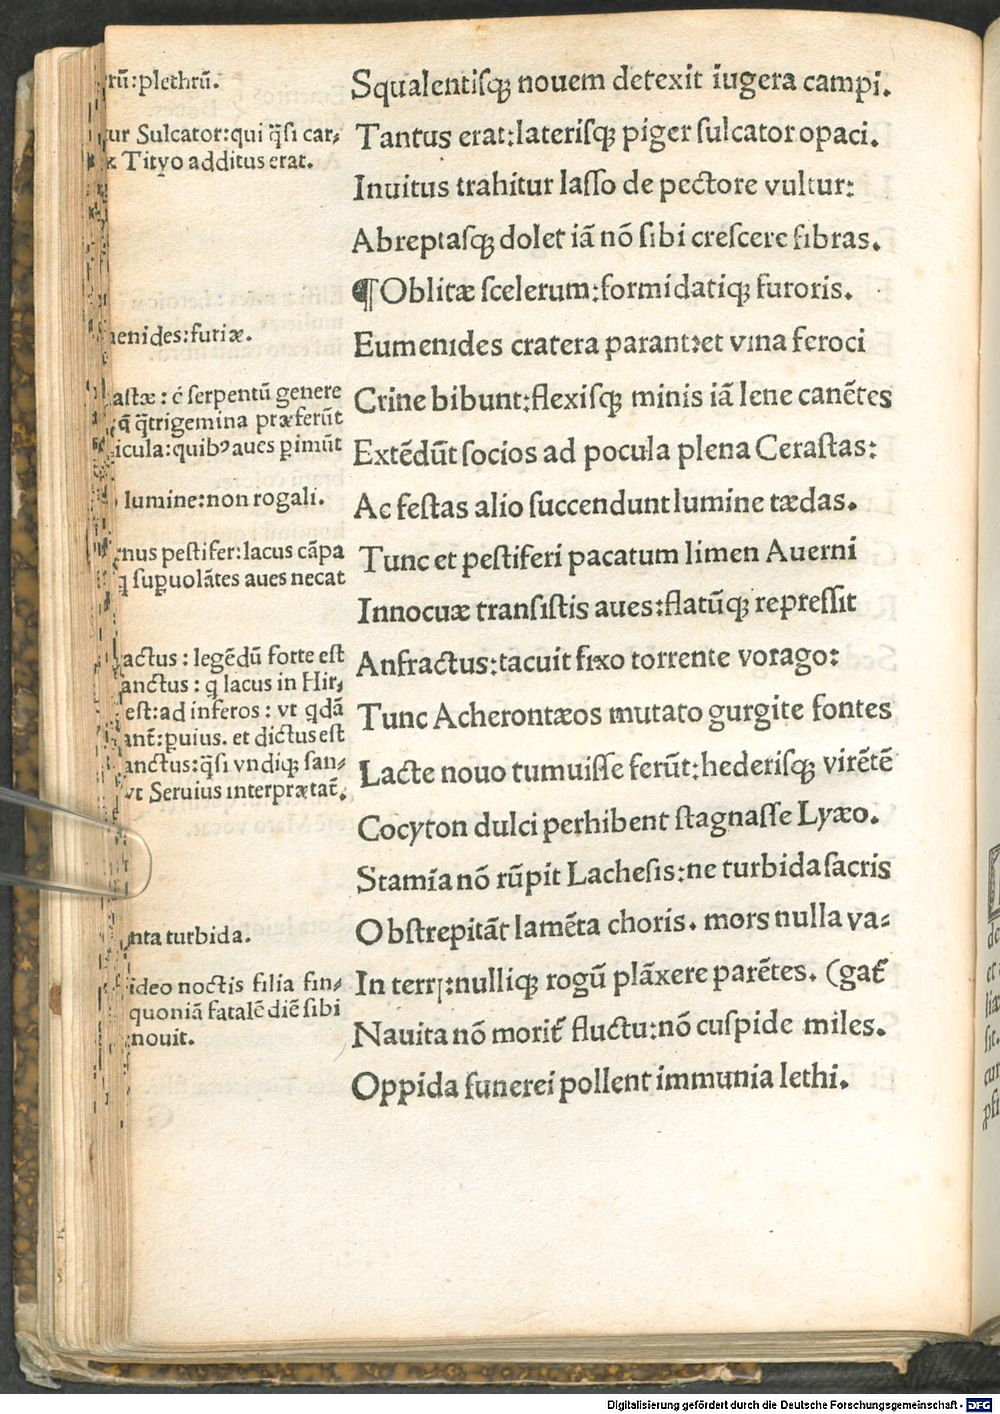 rũ:plethrũ.
ur Sulcator:qui q̃si car⸗
Tityo additus erat.
enides:furiæ.
astæ: ẽ serpentũ genere
q̃trigemina præferũt
icula:quibꝰ aues ꝑimũt
lumine:non rogali.
nus pestifer:lacus cãpa
ꝗ suꝑuolãtes aues necat
actus: legẽdũ forte est
anctus: ꝗ lacus in Hir⸗
est:ad inferos: vt ꝗdã
ant̃:ꝑuius. et dictus est
anctus:q̃si vndiqꝫ san⸗
vt Seruius interprætat̃.
nta turbida.
ideo noctis filia fin⸗
quoniã fatalẽ diẽ sibi
nouit.
Squalentisqꝫ nouem detexit iugera campi.
Tantus erat:laterisqꝫ piger sulcator opaci.
Inuitus trahitur lasso de pectore vultur:
Abreptasqꝫ dolet iã nõ sibi crescere fibras.
¶Oblitæ scelerum:formidatiqꝫ furoris.
Eumenides cratera parant:et vina feroci
Crine bibunt:flexisqꝫ minis iã lene canẽtes
Extẽdũt socios ad pocula plena Cerastas:
Ac festas alio succendunt lumine tædas.
Tunc et pestiferi pacatum limen Auerni
Innocuæ transistis aues:flatũqꝫ repressit
Anfractus:tacuit fixo torrente vorago:
Tunc Acherontæos mutato gurgite fontes
Lacte nouo tumuisse ferũt:hederisqꝫ virẽtẽ
Cocyton dulci perhibent stagnasse Lyæo.
Stamĩa nõ rũpit Lachesis:ne turbida sacris
Obstrepitãt lamẽta choris. mors nulla va⸗
In terrꝭ:nulliqꝫ rogũ plãxere parẽtes. (gat̃
Nauita nõ morit̃ fluctu:nõ cuspide miles.
Oppida funerei pollent immunia lethi.
Digitalisierung gefördert durch die Deutsche Forschungsgemeinschaft - DFG